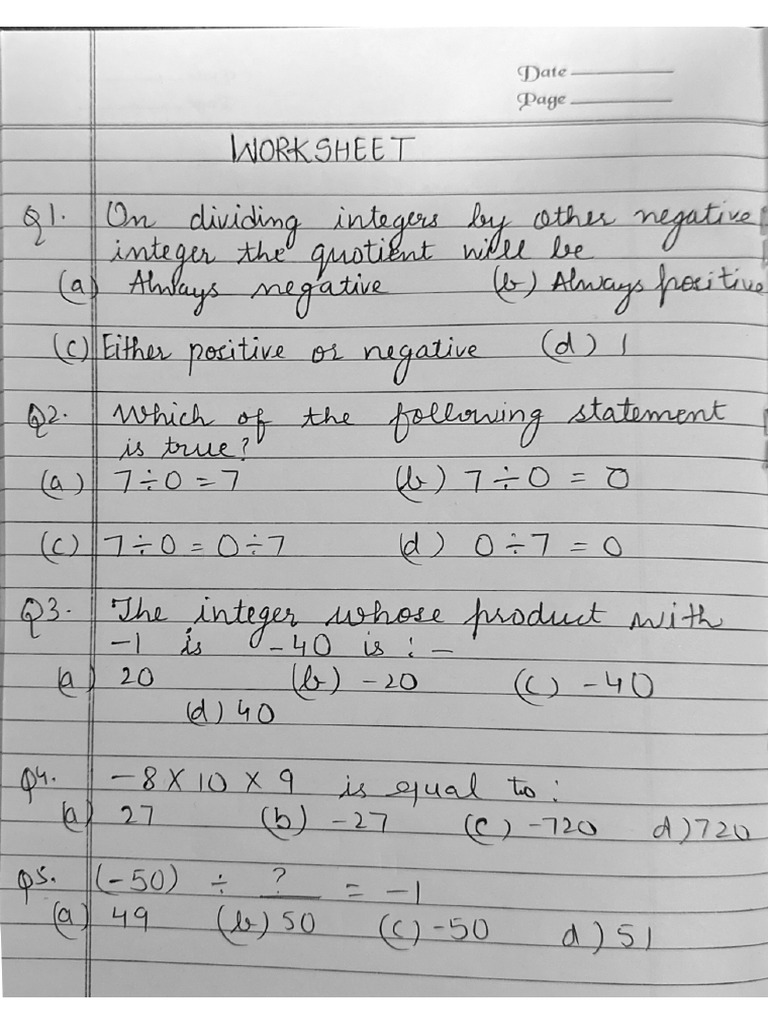 Date
Page
WORKSHEET
Q1. On dividing integers by other negative
integer the quotient will be
(a) Always negative (b) Always positive
(c) Either positive or negative (d) 1
Q2. Which of the following statement
is true?
(a) 7÷0 = 7 (b) 7÷0 = 0
(c) 7÷0 = 0÷7 (d) 0÷7 = 0
Q3. The integer whose product with
-1 is -40 is : -
(a) 20 (b) -20 (c) -40
(d) 40
Q4. -8 × 10 × 9 is equal to :
(a) 27 (b) -27 (c) -720 d) 720
Q5. (-50) ÷ ? = -1
(a) 49 (b) 50 (c) -50 d) 51